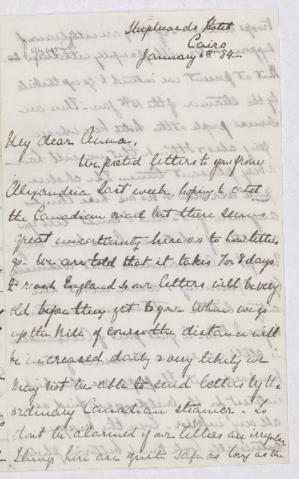 Shepheard's Hotel
Cairo
January 6th 84.
My dear Emma,
We posted letters to you from
Alexandria last week, hoping to catch
the Canadian mail but there seems
great uncertainty here as to how letters
go. We are told that it takes 7 or 8 days
to reach England & our letters will be very
old before they get to you. When we go
up the Nile of course the distance will
be increased daily & very likely we
may not be able to send letters by the
ordinary Canadian steamer. So
dont be alarmed if our letters are irregular
Things here are quite safe as long as the